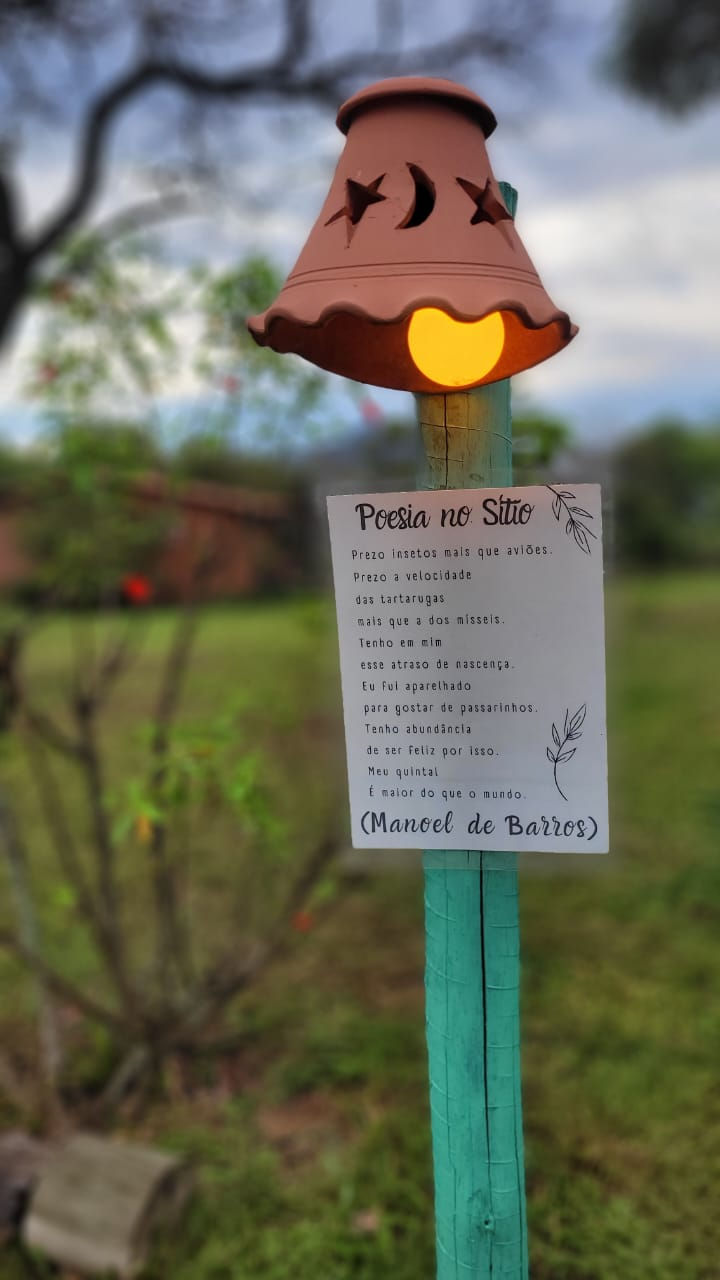 Poesia no Sítio
Prezo insetos mais que aviões.
Prezo a velocidade
das tartarugas
mais que a dos mísseis.
Tenho em mim
esse atraso de nascença.
Eu fui aparelhado
para gostar de passarinhos.
Tenho abundância
de ser feliz por isso.
Meu quintal
É maior do que o mundo.
(Manoel de Barros)